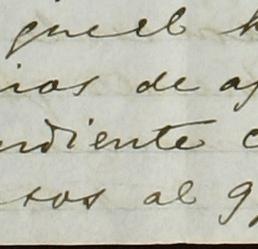 que el h
nos de a
ndiente c
sos al g